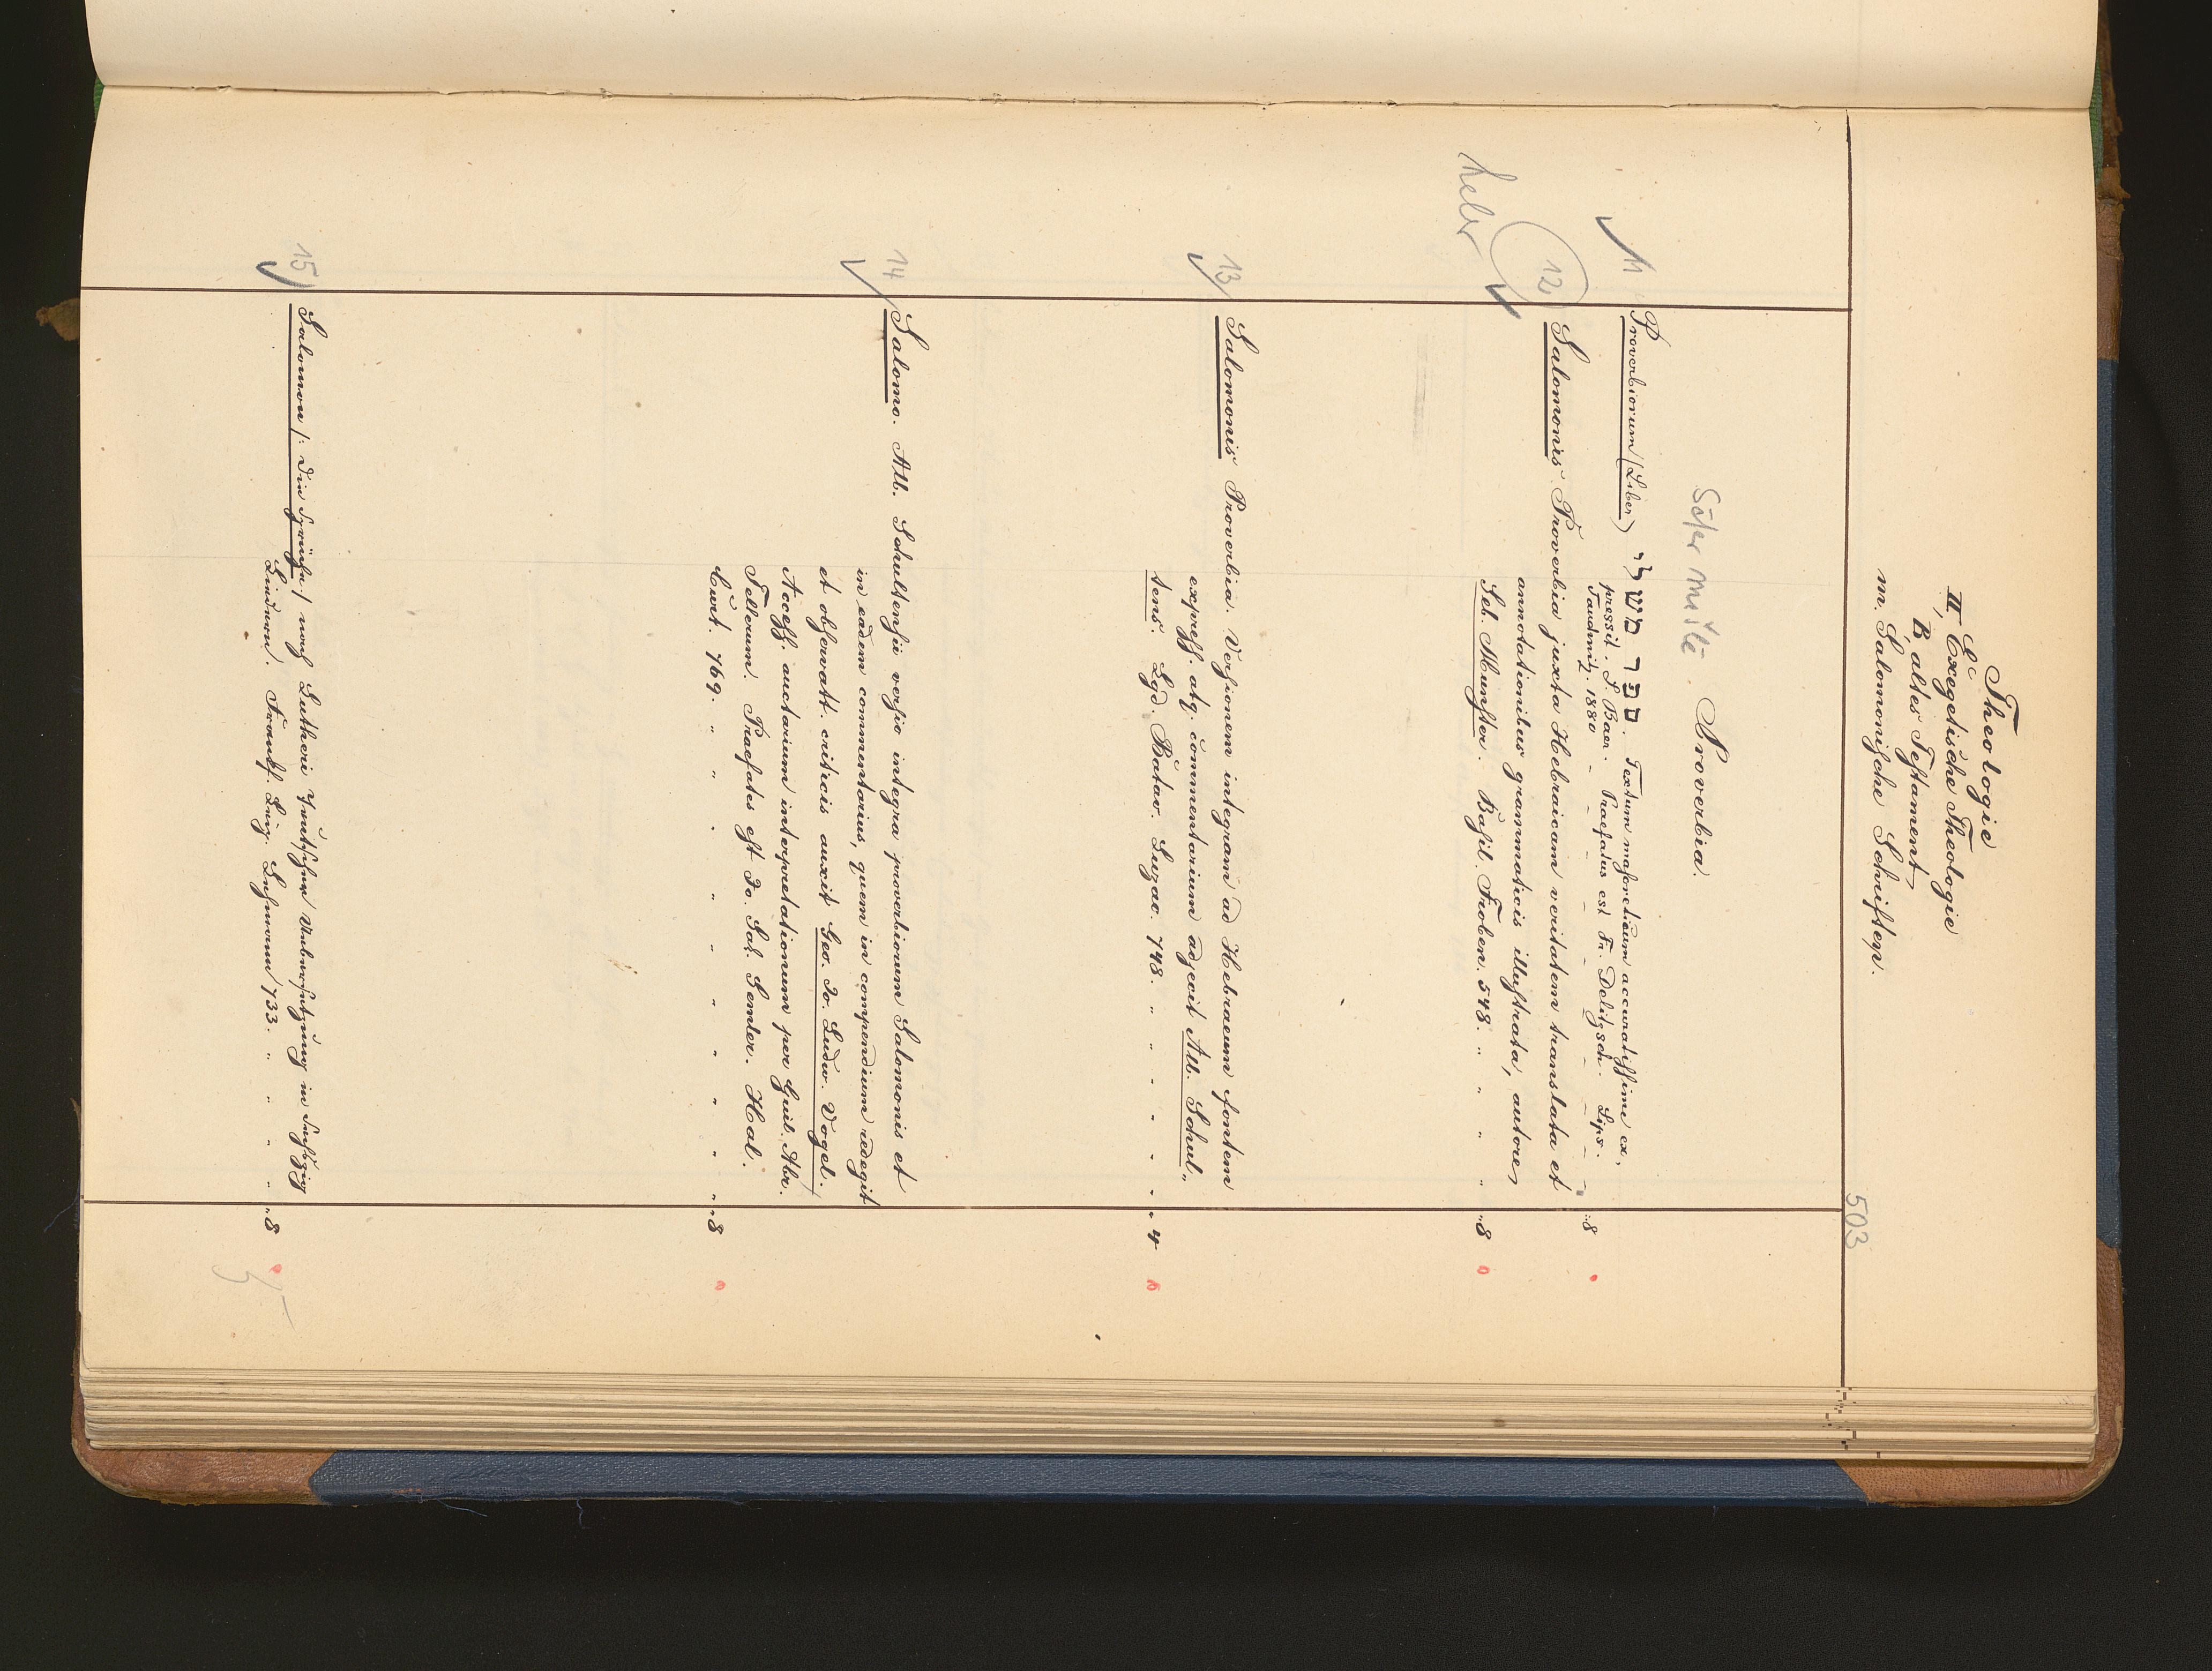 Theologie
II, Exegetische Theologie
B altes Testament
m. Salomonische Schriften.
503
Proverbia.
Sēfer mišlē
11
Proverbiorum (Liber) ספר משלי. Textum masoreticum accuratissime ex,
pressit. S. Baer. Praefatus est Fr. Delitzsch. Lips.
Tauchnitz. 1880 - - - - - - - „8
12
hebr
Salomonis Proverbia juxta Hebraicam veritatem translata et
annotationibus grammaticis illustrata, autore
Seb. Munster. Basil. Froben. 548. „ „ „ „ „8
13
Salomonis Proverbia. Versionem integram ad Hebraeum fontem
express. atq. commentarium adjecit Alb. Schul„
tens. Lgd. Batav. Luzac. 748. „ „ „ „ „ „4
14
Salomo. Alb. Schultensii versio integra proverbiorum Salomonis et
in eadem commentarius, quem in compendium redegit
et observatt. criticis auxit Geo. Jo. Ludw. Vogel.
Access. auctarium interpretationum per Guil. Abr.
Tellerum. Praefatus est Jo. Sal. Semler. Hal.
Curt. 769. „ „ „ „ „ „ „ „ „ „ „8
15
Salomon /: die Sprüche :/ nach Lutheri deutscher Uebersetzung in
Liedern. Frankf. Leipz. 733. „ „ „ „ „8